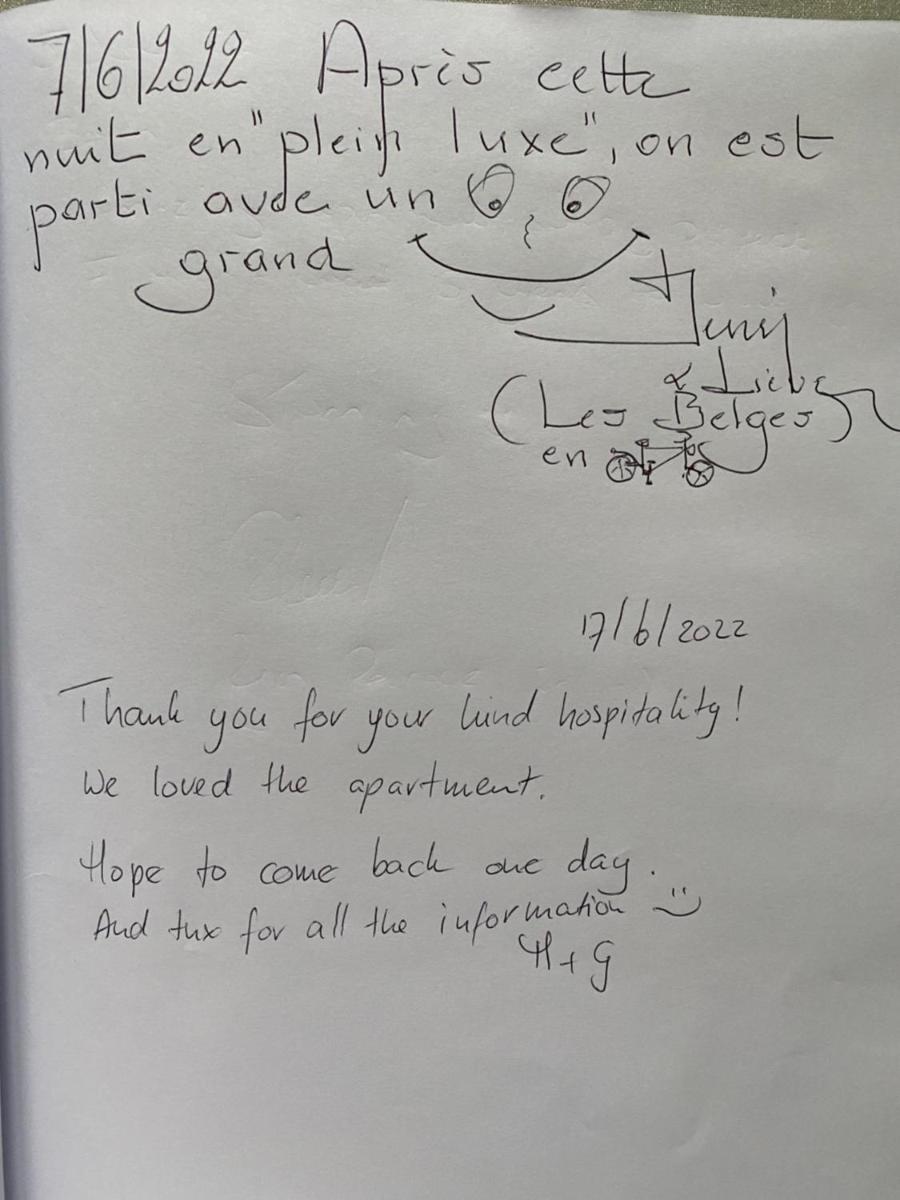 7/6/2022 Après cette
nuit en "plein luxe", on est
parti avde un
grand
& Lieve
(Les Belges)
en
17/6/2022
Thank you for your kind hospitality!
We loved the apartment.
Hope to come back one day.
And tnx for all the information :)
H + G